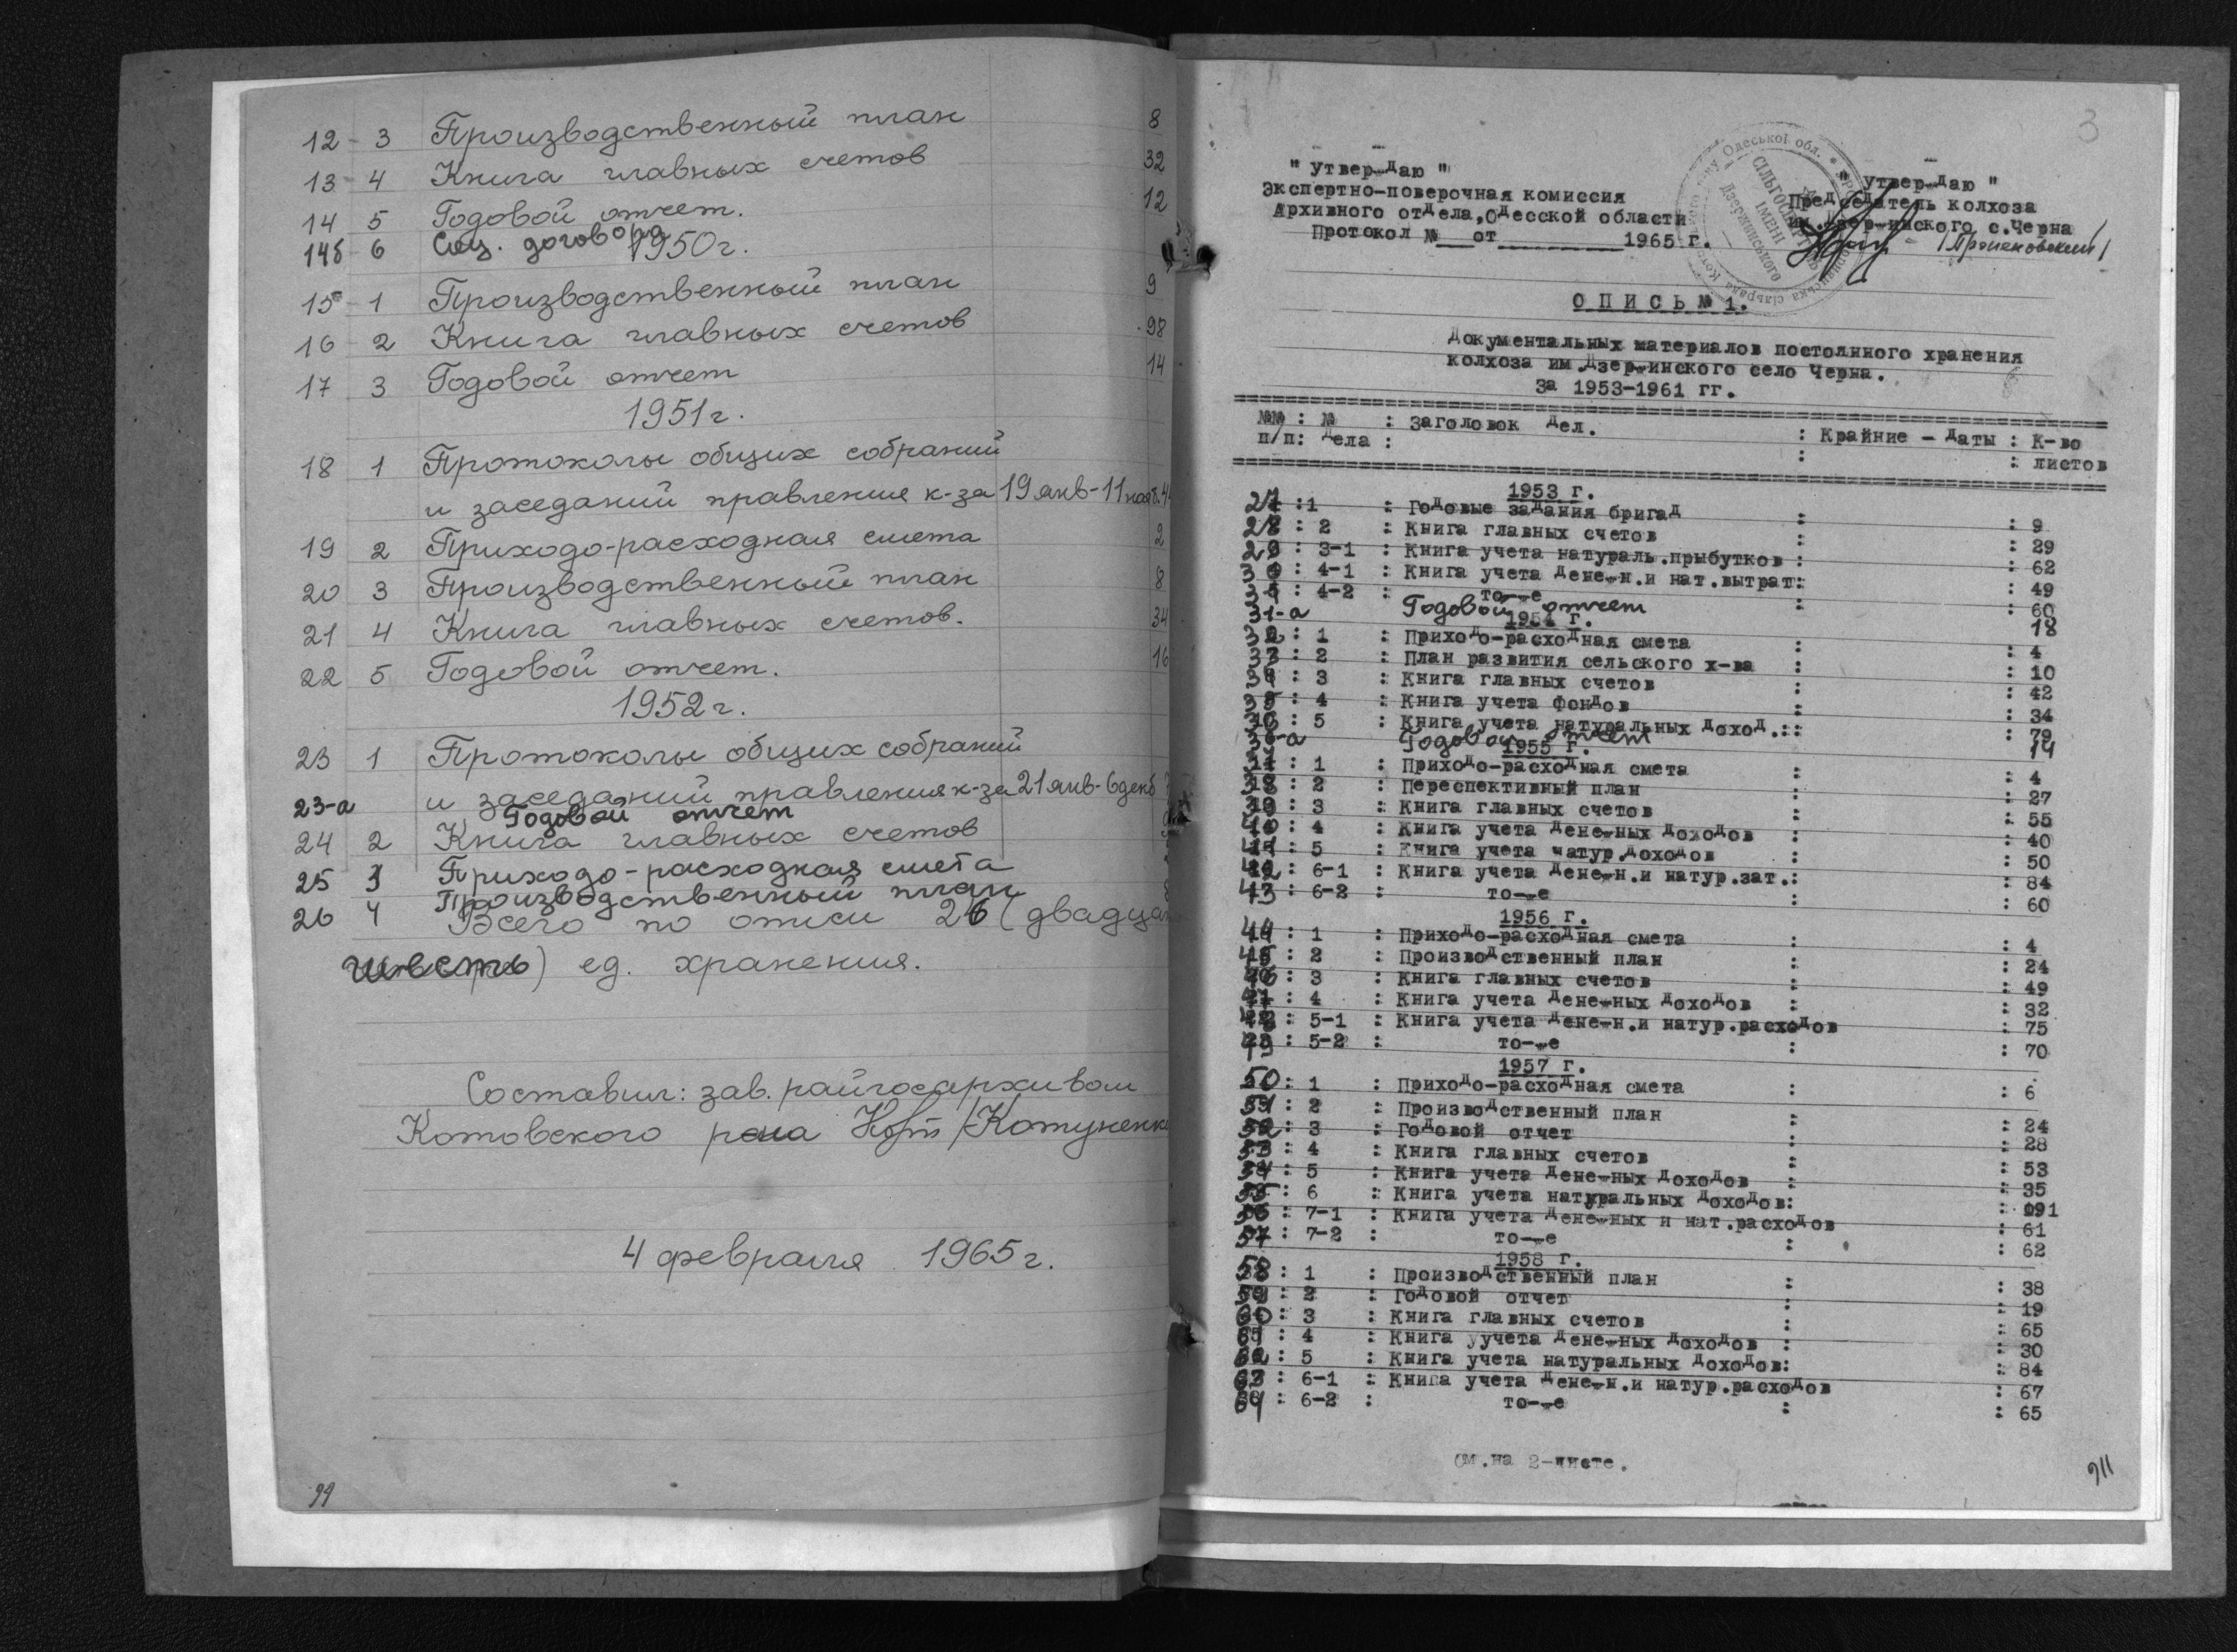 12-3 Производственный план 8
13-4 Книга главных счетов 32
14 5 Годовой отчет. 12
14б 6 Соц. договора
1950г.
15-1 Производственный план 9
16-2 Книга главных счетов 98
17 3 Годовой отчет 14
1951г.
18 1 Протоколы общих собраний
и заседаний правления к-за 19 янв-11
19 2 Приходо-расходная смета 2
20 3 Производственный план 8
21 4 Книга главных счетов. 34
22 5 Годовой отчет. 16
1952г.
23 1 Протоколы общих собраний
и заседаний правления к-за 21 янв-6 декб
23-а Годовой отчет
24 2 Книга главных счетов
25 3 Приходо-расходная смета
26 4 Производственный план 8
Всего по описи 26 (двадца
шесть) ед. хранения.
Составил: зав. райгосархивом
Котовского р-на
4 февраля 1965г.
99
3
" Утвер-даю "
Экспертно-поверочная комиссия
Архивного отдела,Одесской области
Протокол № от 1965 г.
" Утвер-даю "
Председатель колхоза
им.Дзер-инского с.Черна
О П И С Ь № 1.
Документальных материалов постоянного хранения
колхоза им.Дзер-инского село Черна.
За 1953-1961 гг.
№№ : № : Заголовок дел. : Крайние - даты : К-во
п/п: дела : : : листов
1953 г.
27 :1 : Годовые задания бригад : : 9
28 : 2 : Книга главных счетов : : 29
29 : 3-1 : Книга учета натураль.прыбутков : : 62
30 : 4-1 : Книга учета дене-н.и нат.вытрат: : 49
31 : 4-2 : то--е : : 60
31-а Годовой отчет 18
1954 г.
32 : 1 : Приходо-расходная смета : : 4
33 : 2 : План развития сельского х-ва : : 10
34 : 3 : Книга главных счетов : : 42
35 : 4 : Книга учета фондов : : 34
36 : 5 : Книга учета натуральных доход.:: : 79
36-а Годовой отчет 14
1955 г.
37 : 1 : Приходо-расходная смета : : 4
38 : 2 : Переспективный план : : 27
39 : 3 : Книга главных счетов : : 55
40 : 4 : Книга учета дене-ных доходов : : 40
41 : 5 : Книга учета натур.доходов : : 50
42 : 6-1 : Книга учета дене-н.и натур.зат.: : 84
43 : 6-2 : то--е : : 60
1956 г.
44 : 1 : Приходо-расходная смета : : 4
45 : 2 : Производственный план : : 24
46 : 3 : Книга главных счетов : : 49
47 : 4 : Книга учета дене-ных доходов : : 32
48 : 5-1 : Книга учета дене-н.и натур.расходов : 75
49 : 5-2 : то--е : : 70
1957 г.
50 : 1 : Приходо-расходная смета : : 6
51 : 2 : Производственный план : : 24
52 : 3 : Годовой отчет : : 28
53 : 4 : Книга главных счетов : : 53
54 : 5 : Книга учета дене-ных доходов : : 35
55 : 6 : Книга учета натуральных доходов: : 91
56 : 7-1 : Книга учета дене-ных и нат.расходов : 61
57 : 7-2 : то--е : : 62
1958 г.
58 : 1 : Производственный план : : 38
59 : 2 : Годовой отчет : : 19
60 : 3 : Книга главных счетов : : 65
61 : 4 : Книга уучета дене-ных доходов : : 30
62 : 5 : Книга учета натуральных доходов: : 84
63 : 6-1 : Книга учета дене-н.и натур.расходов : 67
64 : 6-2 : то--е : : 65
См.на 2-листе.